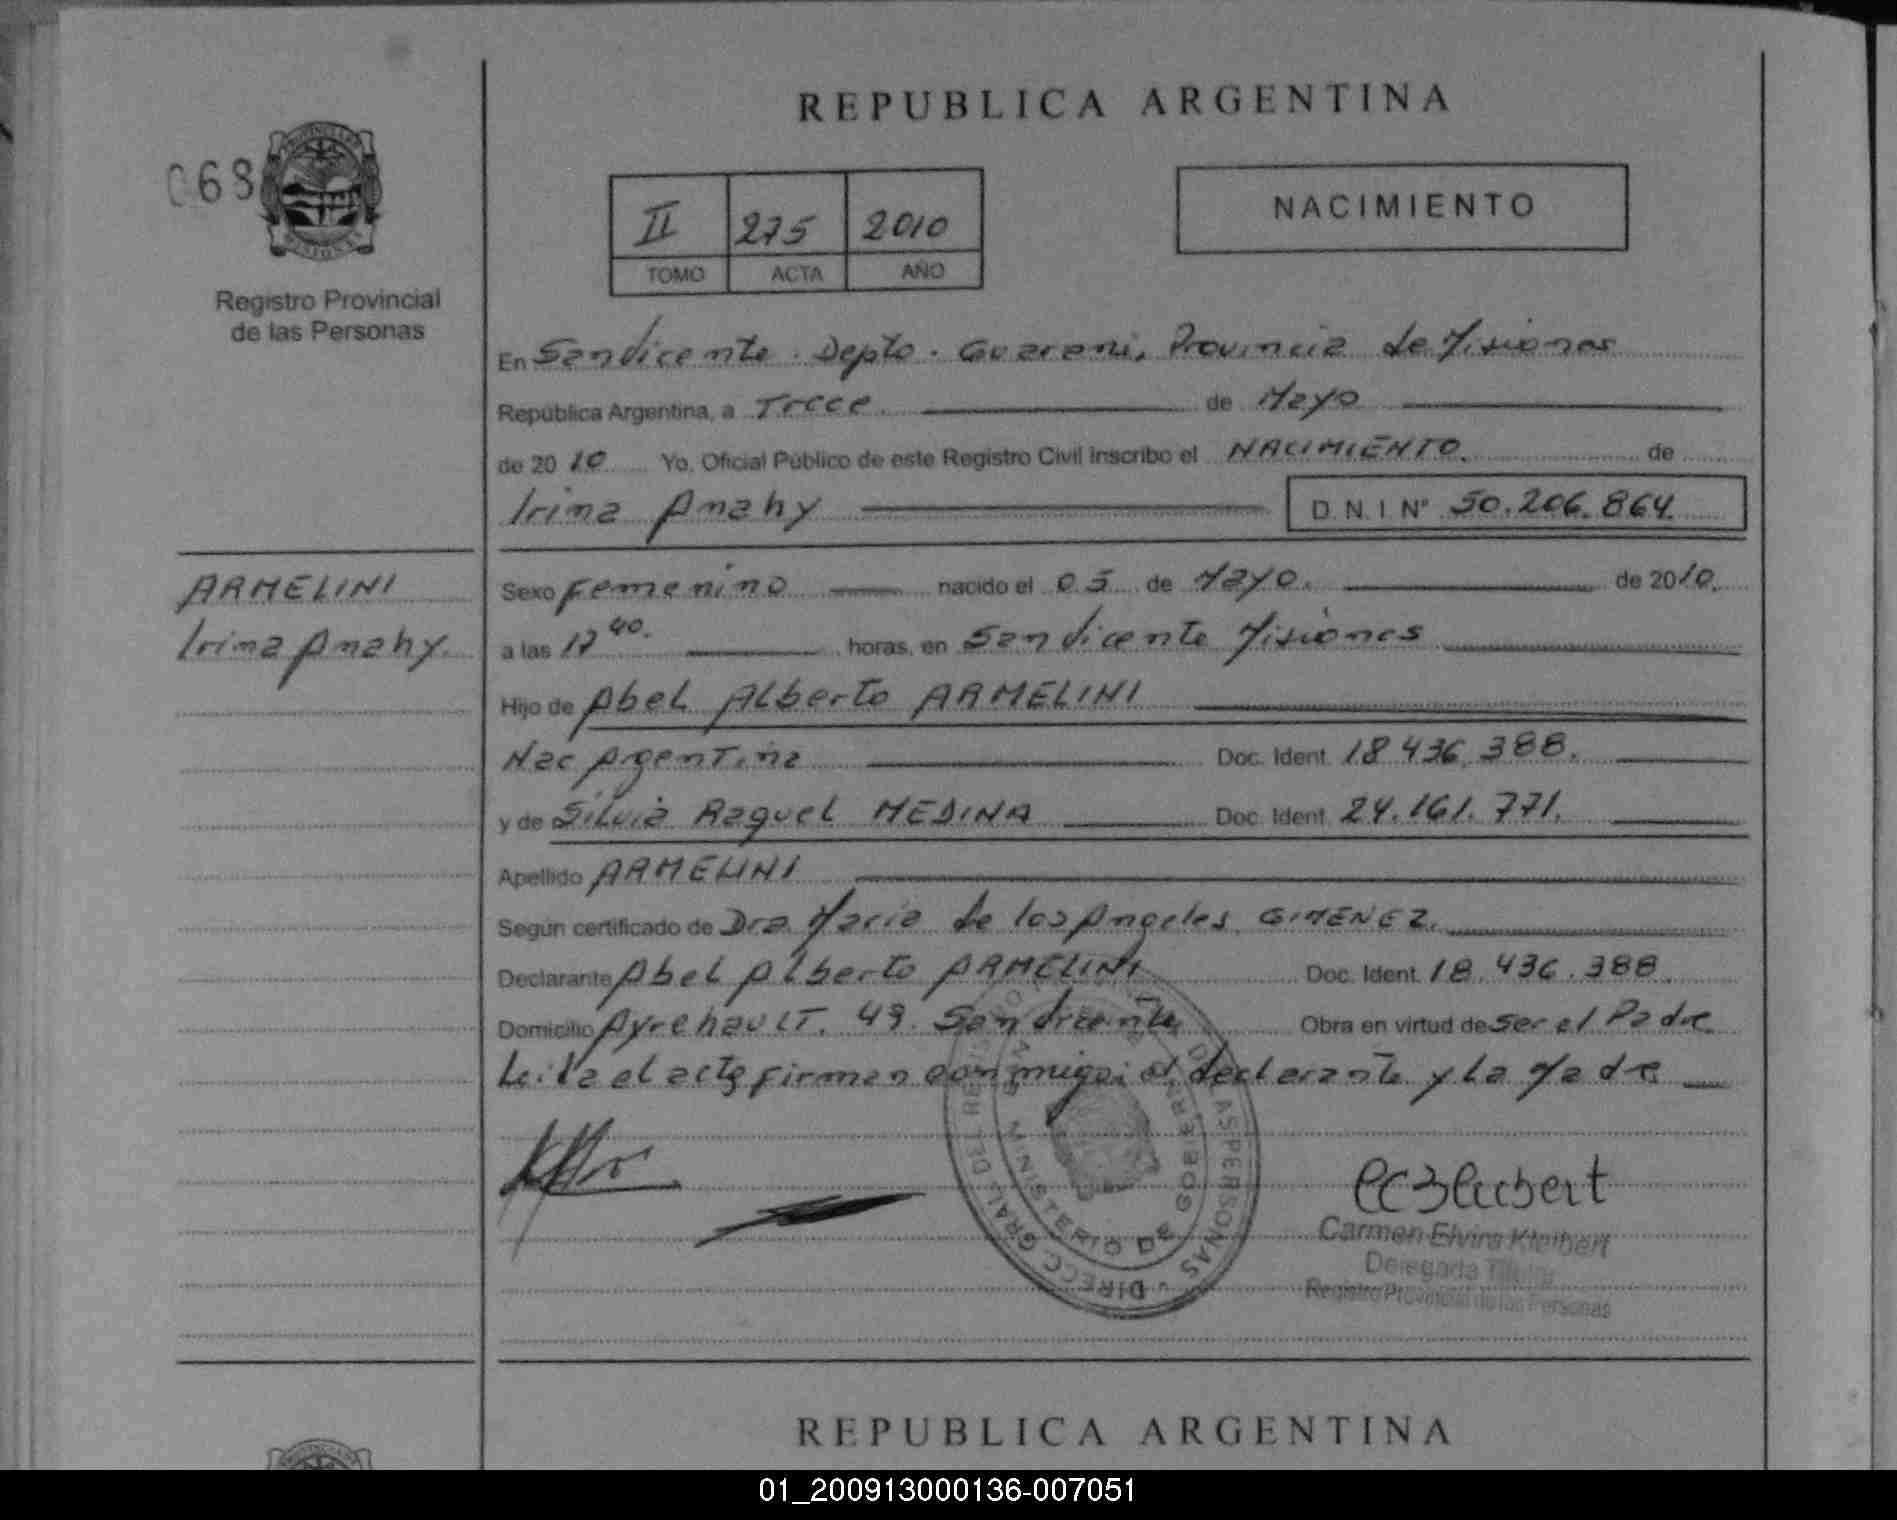 REPUBLICA ARGENTINA
068
II 275 2010
TOMO ACTA AÑO
NACIMIENTO
Registro Provincial
de las Personas
En San Vicente. Depto. Guarani, Provincia de Misiones
República Argentina, a Trece. de Mayo
de 2010 Yo, Oficial Público de este Registro Civil inscribo el NACIMIENTO. de
Irina Anahy D.N.I. Nº 50.206.864.
ARMELINI
Irina Anahy.
Sexo Femenino nacido el 05 de Mayo. de 2010.
a las 17 40. horas, en San Vicente Misiones
Hijo de Abel Alberto ARMELINI
Nac Argentina Doc. Ident. 18.436.388.
y de Silvia Raquel MEDINA Doc. Ident. 24.161.771.
Apellido ARMELINI
Según certificado de Dra Maria de los Angeles GIMENEZ.
Declarante Abel Alberto ARMELINI Doc. Ident. 18.436.388
Domicilio Ayrehault. 49. San Vicente Obra en virtud de ser el Padre
Leida el acta firman conmigo: el declarante y la Madre
DIRECC. GRAL. DEL REGISTRO DE LAS PERSONAS
MINISTERIO DE GOBIERNO
Carmen Elvira Kleibert
Delegada Titular
Registro Provincial de las Personas
REPUBLICA ARGENTINA
01_200913000136-007051